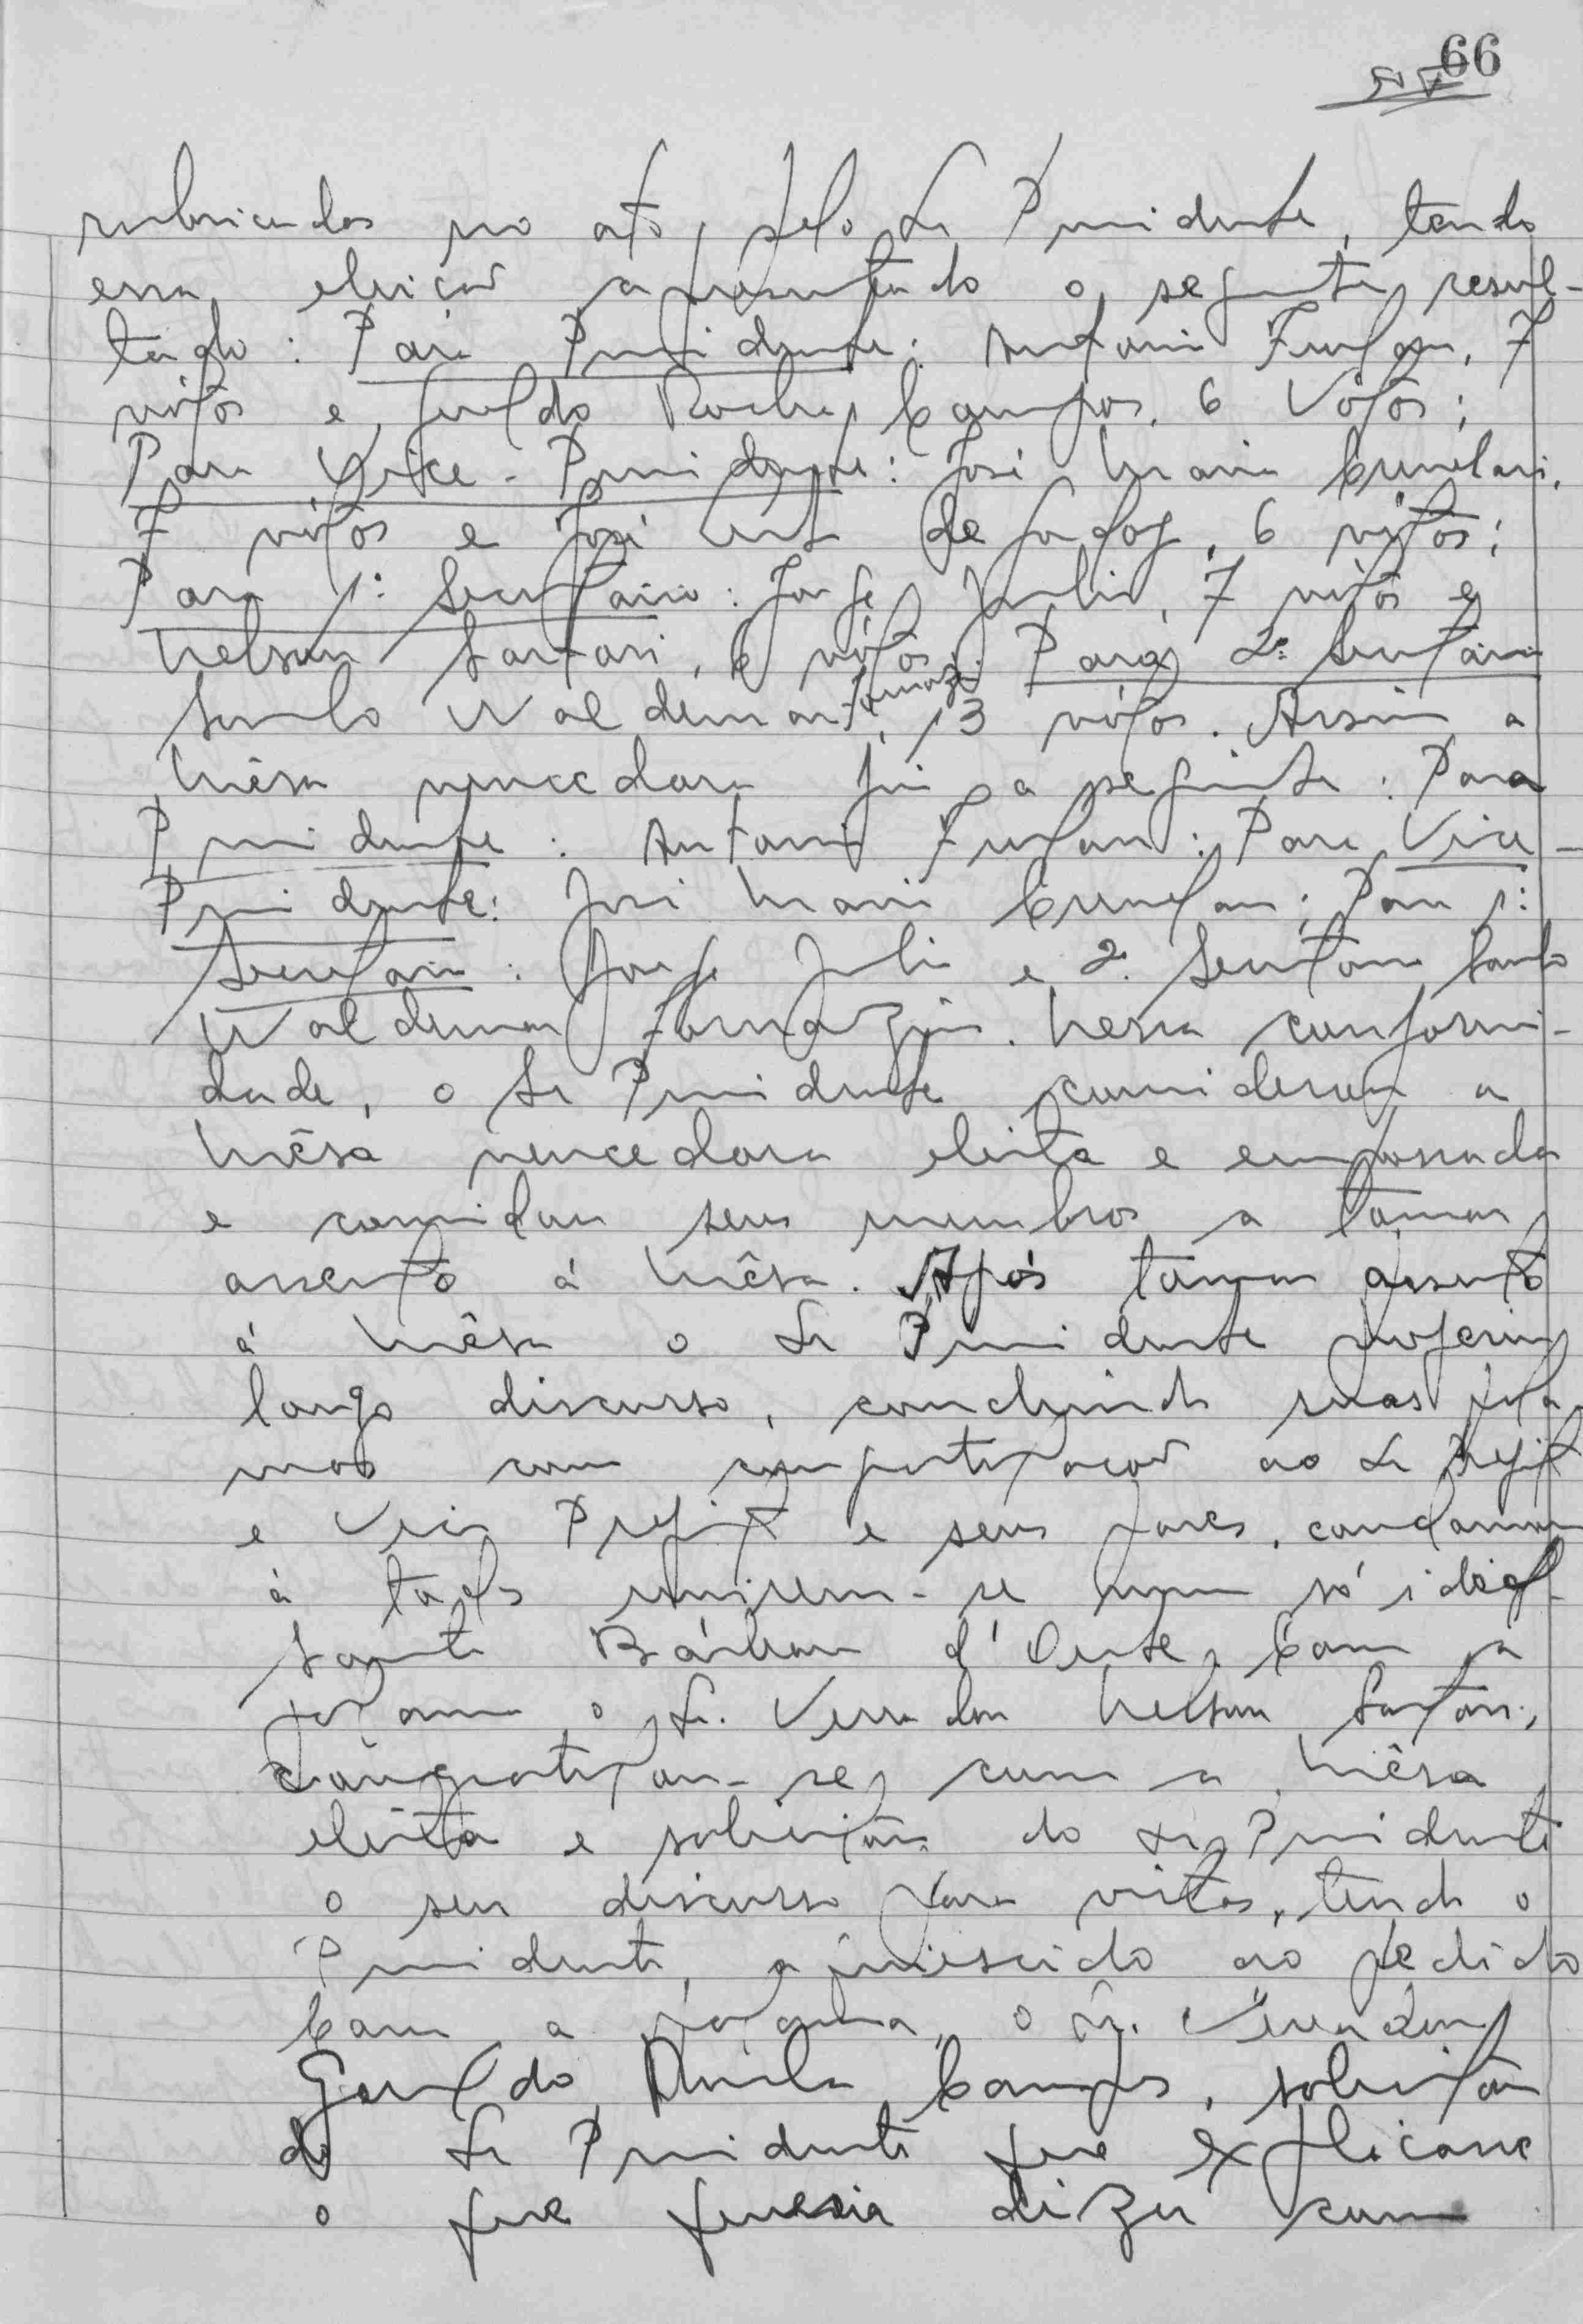 66
rubricadas no ato, pelo Sr Presidente, tendo
essa eleição apresentado o seguinte resul-
tado: Para Presidente: Antonio Furlan, 7
vótos e Geraldo Rocha Campos, 6 vótos;
Para Vice-Presidente: José Maria
7 vótos e José de Godoy, 6 vótos;
Para 1º Secretário: Jorge Julio, 7 vótos e
Nelson Sartori, 6 vótos; Para 2º Secretário
Santo Waldemar Fornazin, 13 vótos. Assim a
Mêsa vencedora foi a seguinte: Para
Presidente: Antonio Furlan: Para Vice-
Presidente: José Maria ; Para 1º
Secretario: Jorge Julio e 2º Secretario Santo
Waldemar Fornazin. Nessa conformi-
dade, o Sr Presidente considerou a
Mêsa vencedora eleita e empossada
e convidou seus membros a tomar
assento á Mêsa. Após tomar assento
á Mêsa o Sr Presidente proferiu
longo discurso, concluindo suas pala-
vras com congratulação ao Sr Prefeito
e Vice Prefeito e seus pares, conclamou
á todos unirem-se num só ideal-
Santa Bárbara d'Oeste. Com a
palavra o Sr. Vereador Nelson Sartori,
congratulou-se com a Mêsa
eleita e solicitou do Sr Presidente
o seu discurso para vistas, tendo o
Presidente, aquiescido ao pedido
Com a palavra, o Sr. Vereador
Geraldo Rocha Campos, solicitou
do Sr Presidente que explicasse
o que queria dizer com